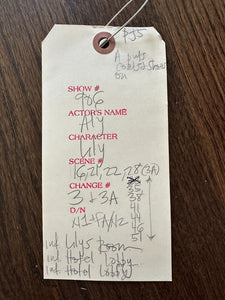 PJs
A puts
on
SHOW #
906
ACTOR'S NAME
Aly
CHARACTER
Lily
SCENE #
16, 21, 22, 28 (3A)
35
38
CHANGE #
3 + 3A
41
44
D/N
46
51
Int Lilys Room
Int Hotel Lobby
Int Hotel Lobby